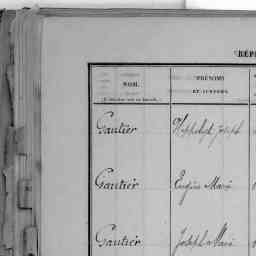 RÉP
NOM. PRÉNOMS
ET SURNOMS.
Gautier Hippolyte Joseph
Gautier Eugène Marie
Gautier Joseph Marie